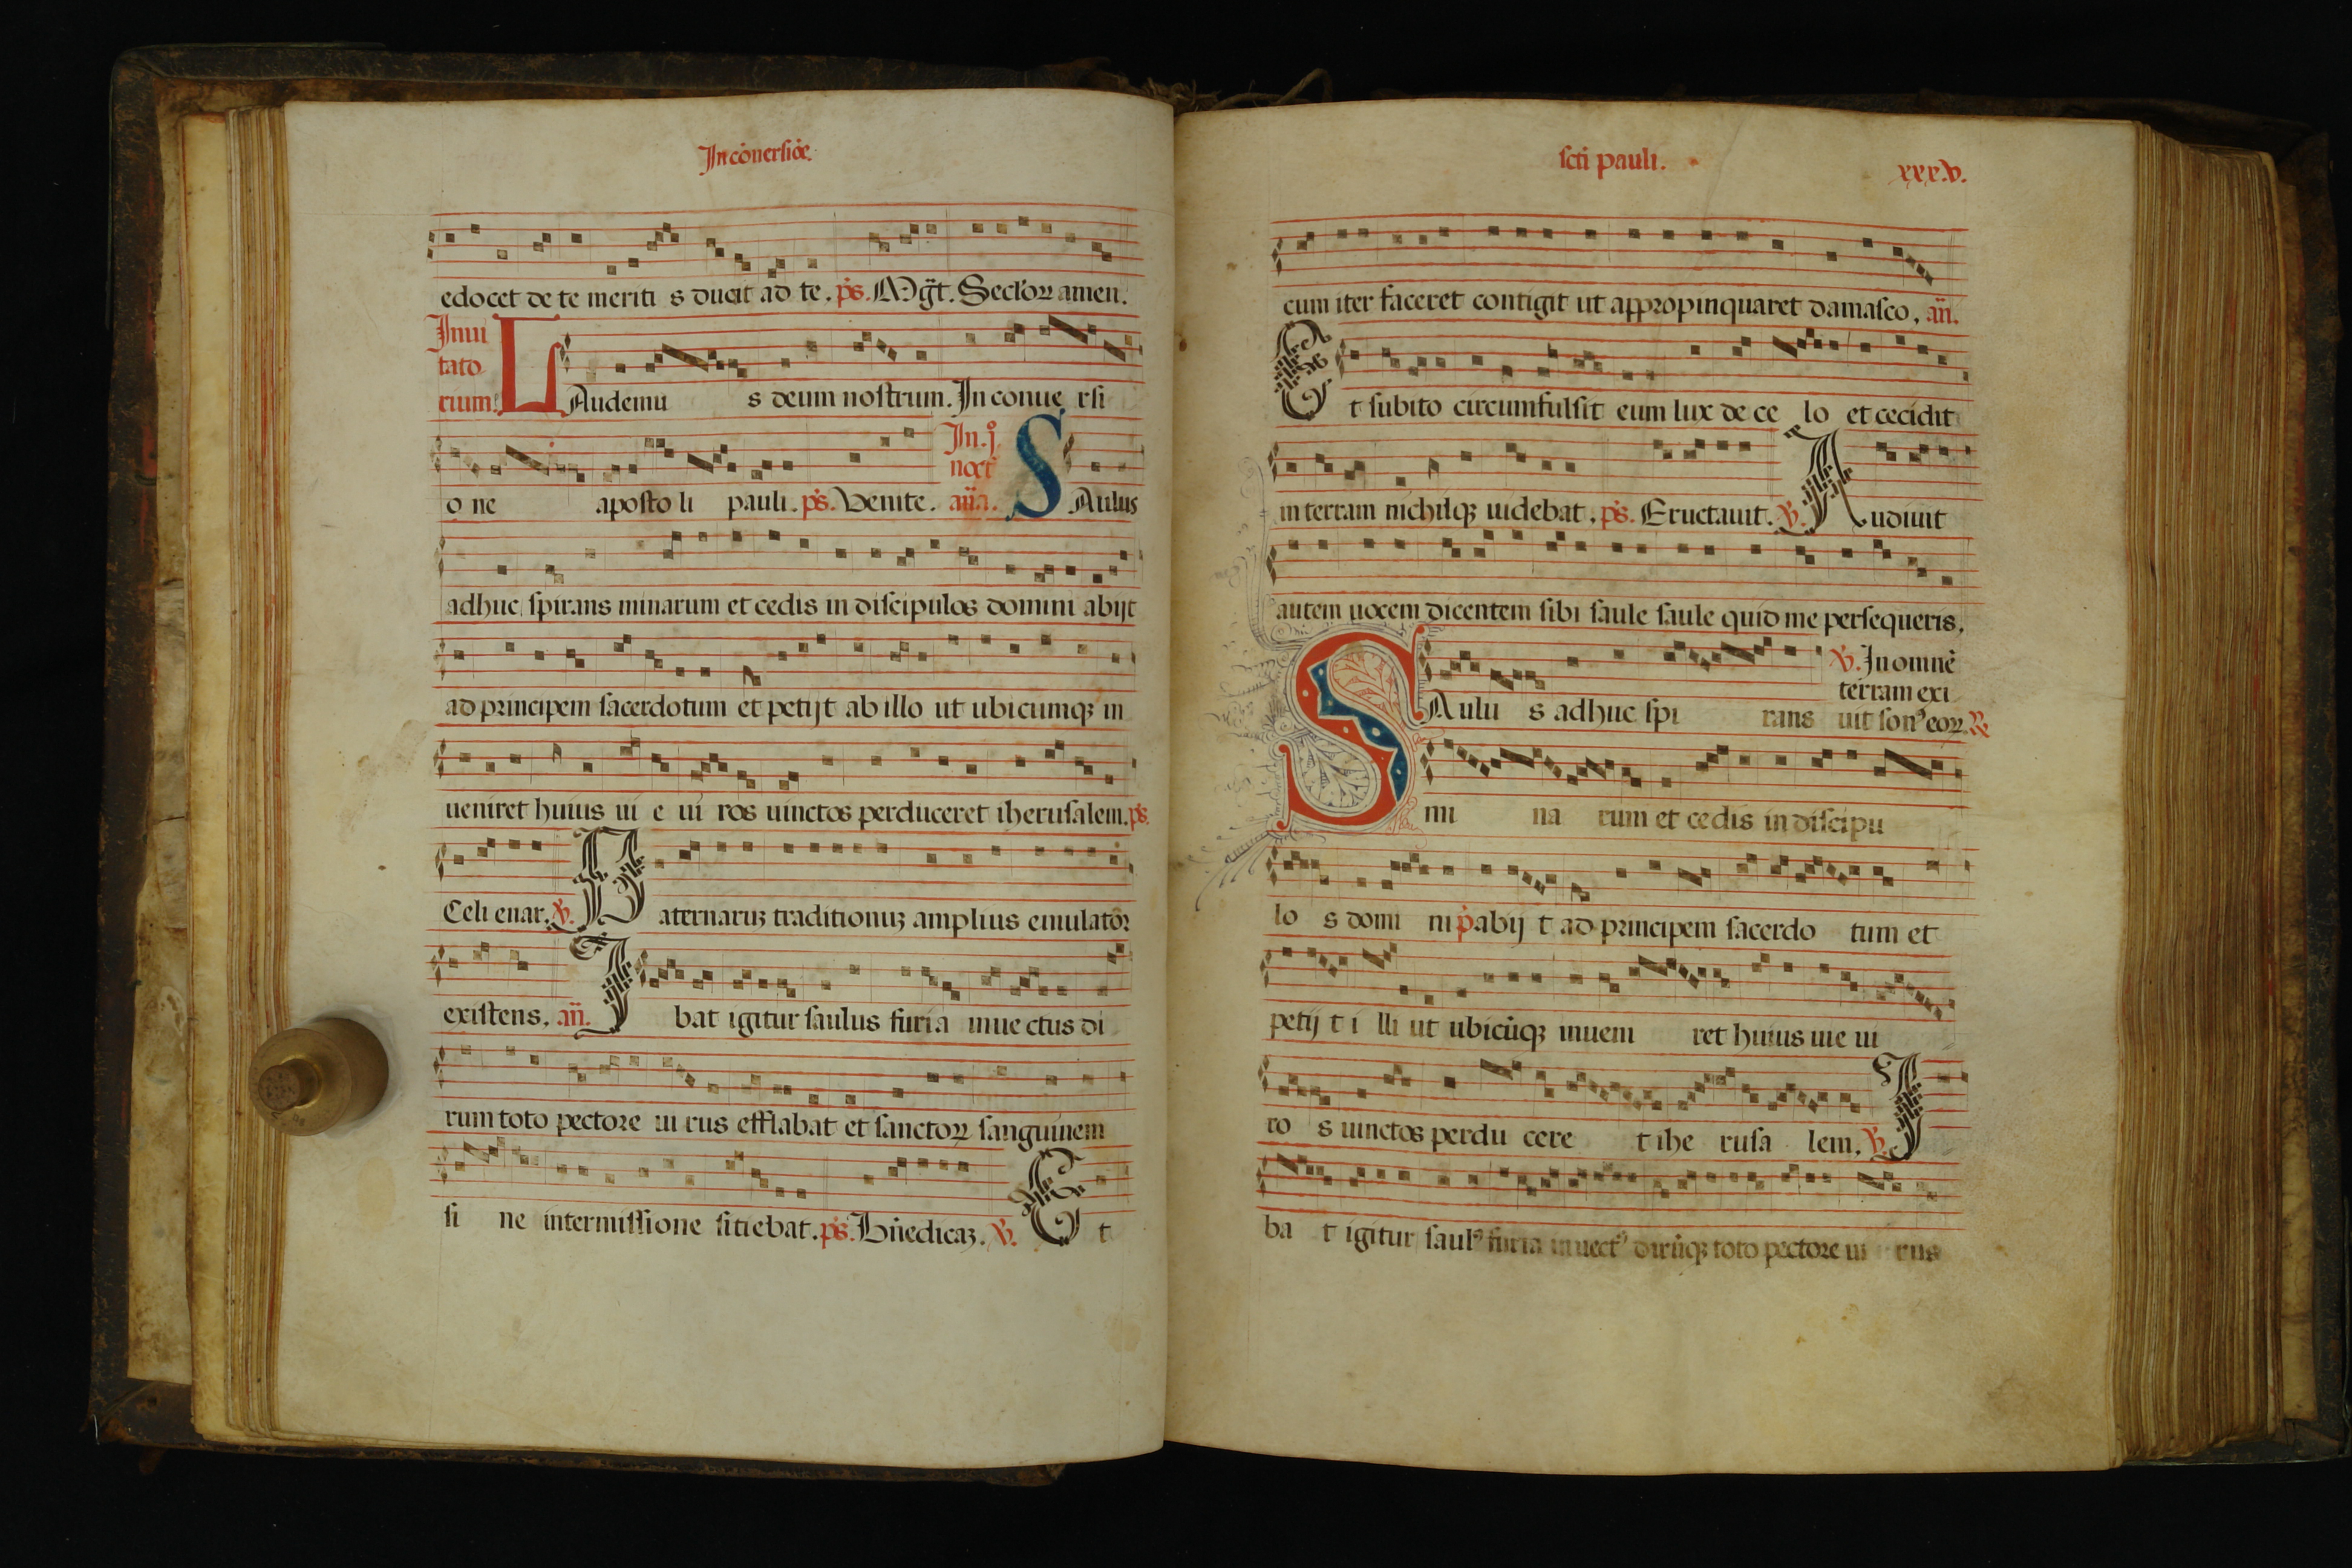 In cōuersiōe.
edocet de te meriti s ducit ad te. ps. Mḡt. Sectoꝝ amen.
Inui
tato
rium.
LAudemu s deum nostrum. In conue rsi
o ne aposto li pauli. ps. Venite.
In .j.
noct
an̄a. SAulus
adhuc spirans minarum et cedis in discipulos domini abijt
ad principem sacerdotum et petijt ab illo ut ubicumqꝫ in
ueniret huius ui e ui ros uinctos perduceret iherusalem. ps.
Celi enar. ℣. Paternaruꝫ traditionuꝫ amplius emulatōr
existens. an̄. Ibat igitur saulus furia inue ctus di
rum toto pectore ui rus efflabat et sanctoꝝ sanguinem
si ne intermissione sitiebat. ps. Bn̄edicaꝫ. ℣. Et
scti pauli.
xxx.v.
cum iter faceret contigit ut appropinquaret damasco. an̄.
Et subito circumfulsit eum lux de ce lo et cecidit
in terram nichilqꝫ uidebat. ps. Eructauit. ℣. Audiuit
autem uocem dicentem sibi saule saule quid me persequeris.
SAulu s adhuc spi rans
℣. In omnē
terram exi
uit sonꝰ eoꝝ. ℟
mi na rum et cedis in discipu
lo s domi ni p abij t ad principem sacerdo tum et
petij t i lli ut ubicūqꝫ inueni ret huius uie ui
ro s uinctos perdu cere t ihe rusa lem. ℣. I
ba t igitur saulꝰ furia inuectꝰ dirūqꝫ toto pectore ui rus